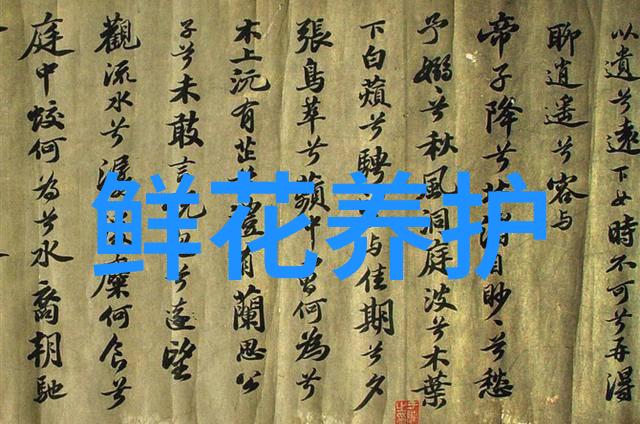 以遺兮遠下女時不可兮再得
聊逍遙兮容与
帝子降兮渚目眇〻兮愁
予嫋〻兮秋風洞庭波兮木葉
下白蘋兮騁与佳期兮夕
張鳥萃兮蘋中罾何為兮
木上沅有茝醴有蘭思公
子兮未敢言兮遠望
觀流水兮潺麋何食兮
庭中蛟何為兮水裔朝馳
鲜花养护